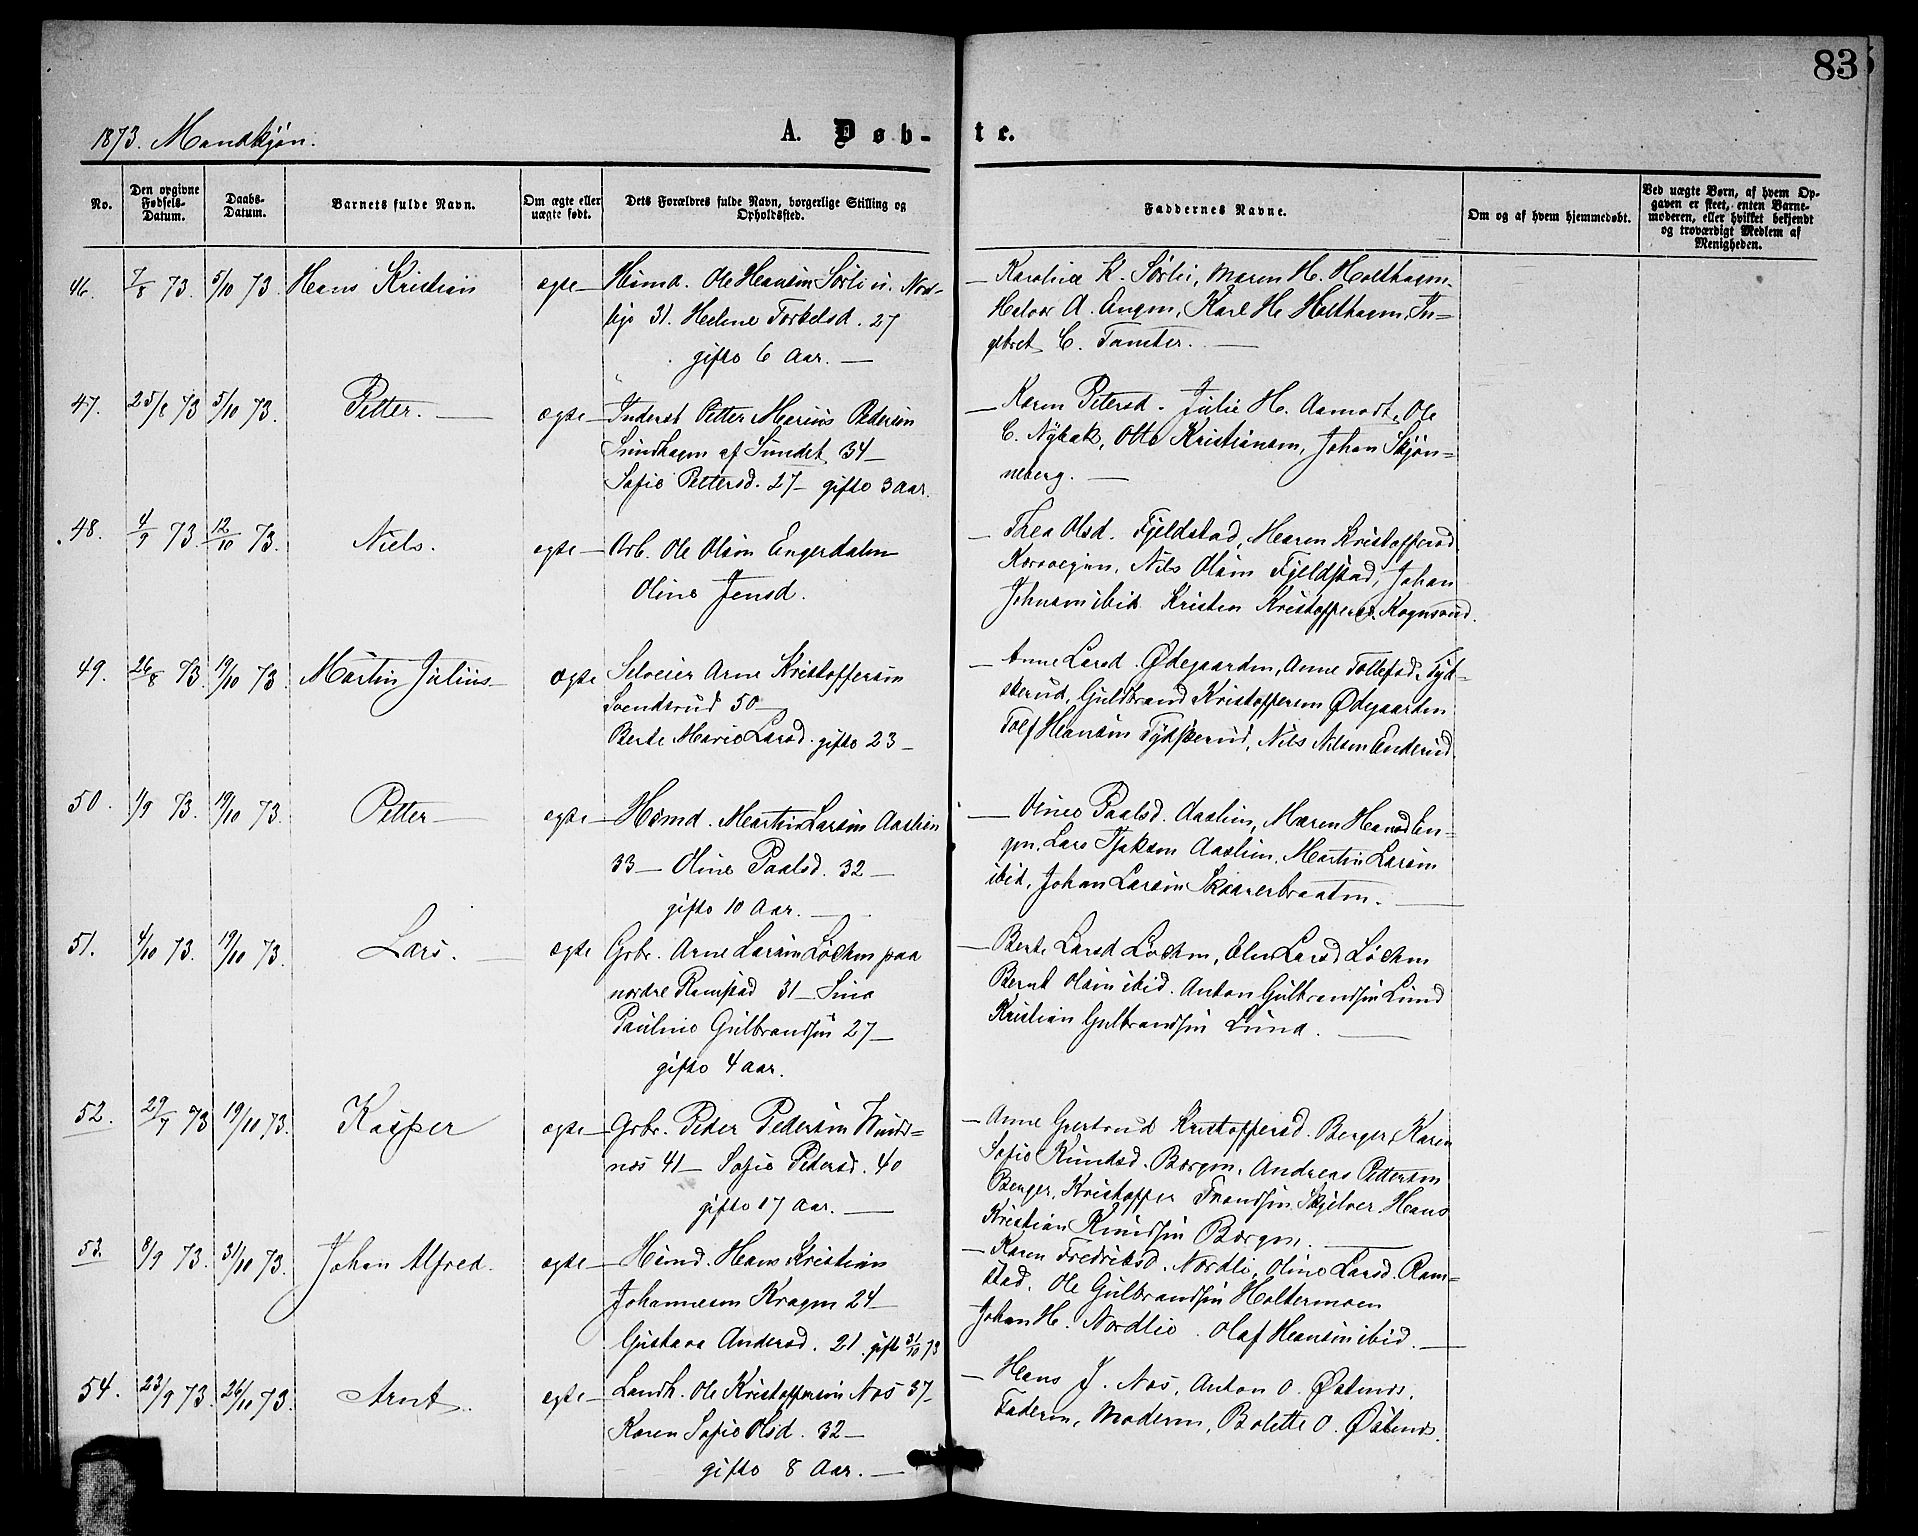 83
1873. Mandkjøn.
A. Døb-
te.
No.
Den opgivne Fødsels-Datum.
Daabs-Datum.
Barnets fulde Navn.
Om ægte eller uægte født.
Dets Forældres fulde Navn, borgerlige Stilling og Opholdssted.
Faddernes Navne.
Om og af hvem hjemmedøbt.
Ved uægte Børn, af hvem Opgaven er skeet, enten Barnemoderen, eller hvilket bekjendt og troværdigt Medlem af Menigheden.
46. 7/8 73. 5/10 73. Hans Kristian ægte Husmd. Ole Hansen Sørli
31. Helene Torkelsd. 27
gifte 6 Aar.
Karoline K. Sørli, Maren H. Holthagen,
Halvor A. Engen, Karl H. Holthagen, In=
gebret C. Tamter.
47. 25/8 73 5/10 73. Petter. ægte Inderst Petter Marius Pedersen
Sundhagen af Sundet 34
Sofie Pettersd. 27 gifte 3 Aar.
Karen Petersd. Julie H. Aamodt, Ole
C. Nybak, Otto Kristiansen, Johan Skjøn=
neberg.
48. 4/9 73. 12/10 73. Niels. ægte Arb. Ole Olsen Engerdalen
Oline Jensd.
Thea Olsd. Fjeldstad, Maren Kristoffersd
Korsvegen, Nils Olsen Fjeldstad, Johan
Johnsen ibid. Kristen Kristoffersen
49. 26/8 73. 19/10 73. Martin Julius ægte Selveier Arne Kristoffersen
Svendsrud 50
Berte Marie Larsd. gifte 23
Anne Larsd. Ødegaarden, Anne Tollefsd. Tyd=
skerud, Guldbrand Kristoffersen Ødegaarden
Tolf Hansen Tydskerud, Nils Nilsen Enderud
50. 1/9 73. 19/10 73. Petter ægte Husmd. Martin Larsen Aaslien
33 Oline Paalsd. 32
gifte 10 Aar.
Paalsd. Aaslien, Maren Hansd En=
gen, Lars Aaslien, Martin Larsen
ibid, Johan Larsen Skaarerbraaten.
51. 4/10 73. 19/10 73. Lars. ægte Grbr. Arne Larsen Løchen paa
nordre Ramstad 31 Sina
Pauline Gulbrandsen 27
gifte 4 Aar.
Berte Larsd Løchen, Elen Larsd Løchen
Bernt Olsen ibid. Anton Gulbrandsen Lund
Kristian Gulbrandsen Lund.
52. 29/7 73 19/10 73. Kasper ægte Grbr. Peder Pedersen
næs 41 Sofie Petersd. 40
gifte 17 Aar.
Anne Gjertrud Kristoffersd. Berger, Karen
Sofie Knudsd. Bergen, Andreas Pettersen
Berger, Kristoffer Frandsen Skjelver Hans
Kristian Knudsen Bergen.
53. 8/9 73. 31/10 73. Johan Alfred. ægte Husmd. Hans Kristian
Johannesen Kragen 24
Gustava Andersd. 21. gift 31/10 73
Karen Fredriksd. Nordli, Oline Larsd. Ram=
stad. Ole Gulbrandsen Holtermoen
Johan H. Nordlie. Olaf Hansen ibid.
54. 23/9 73. 26/10 73. Arnt. ægte Landh. Ole Kristoffersen Næs 37
Karen Sofie Olsd. 32
gifte 8 Aar.
Hans J. Næs, Anton O. Østnes,
Faderen, Moderen, Bolette O. Østnes.